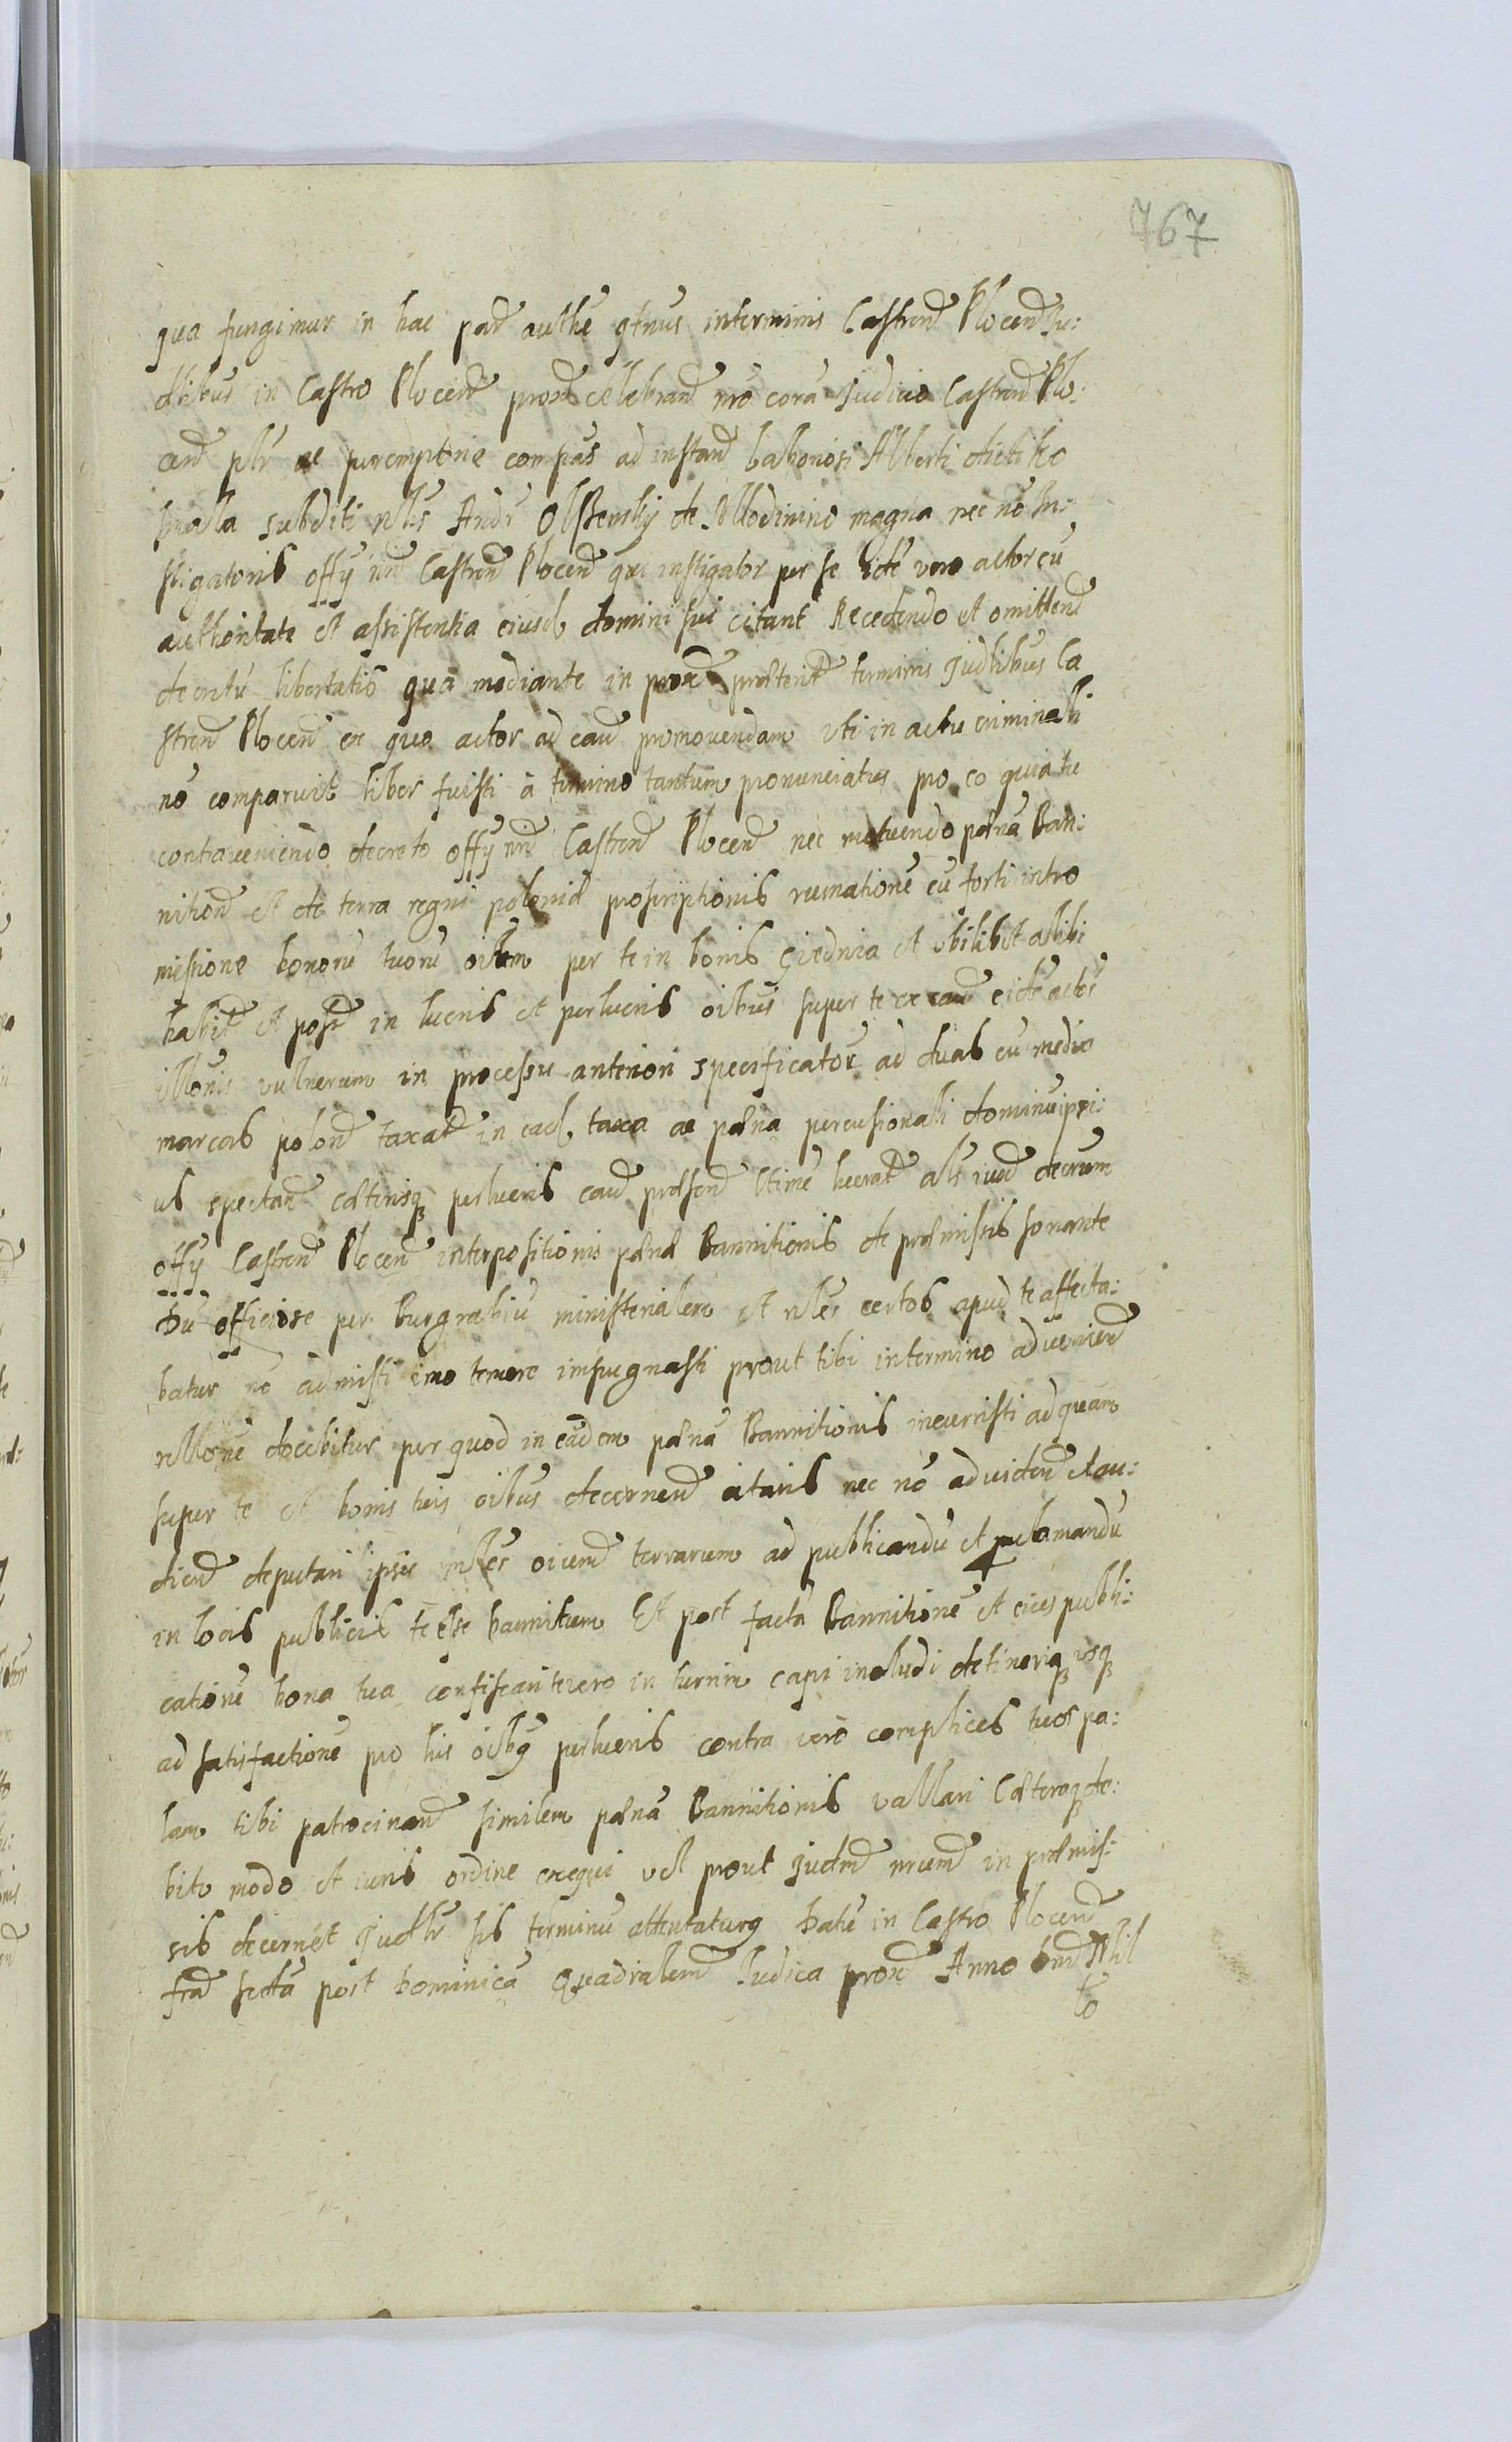 767
qua fungimur in hac par̃ authẽ qtnus in terminis Castreñ Ploceñ Iu:
dlibus in Castro Ploceñ prox̃ celebrañ mõ corã Iudicio Castreñ Plo:
ceñ plr̃ ac peremptorie compas̃ ad instañ laboriosi Alberti dicti Ko
 subditi nlis Andr̃ Olszewskÿ de Mlodinino magna nec nõ In:
stigatoris offÿ nr̃i Castreñ Ploceñ qui instigator per se idẽ vero actor cũ
authoritate et assistentia eiusd domini sui citant Recedendo et omitteñ
decretũ libertatis quã mediante in prox̃ præterit̃ terminis Judlibus Ca
streñ Ploceñ ex quo actor ad cauã promouendam vti in actu criminali
nõ comparuit liber fuisti à termino tantum pronunciatus pro eo quia tu
contraueniendo decreto offÿ nr̃i Castreñ Ploceñ nec metuendo pænã Ban:
nitioñ et de terra regni poloniæ proscriptionis ruinatione cũ forti intro
missione bonorũ tuorũ oium per te in bonis Giednia et vbilibet alibi
habit̃ et poss̃ in lucris et perlucris oibus super te ex cauã eidẽ actor̃
illõnis vulnerum in processu anteriori specificator̃ ad duas cũ medio
marcas poloñ taxat̃ in ead taxa ac pæna percusionali dominũ ipsi:
us spectañ cæterisq perlucris cauã præseñ ltime lucrat̃ als iuod̃ decrum
offÿ Castreñ Ploceñ interpositionis pænæ Bannitionis de præmissis sonante
Dũ officiose per Burgrabiũ ministerialem et nles certos apud te affecta:
batur nõ admisti imo temere impugnasti prout tibi in termino aduenieñ
rellõne docebitur per quod in eãdem pænã Bannitionis incurristi ad quam
super te et bonis tuis oibus decerneñ citaris nec nõ ad videñ et au:
dieñ deputari ipsis mles oium terrarum ad publicandũ et proclamandũ
in locis publicis te esse bannitum Et post factã Bannitionẽ et eius publi:
cationẽ bona tua confiscari te vero in turrim capi includi detineriq vsq
ad satisfactionẽ pro his oibus perlucris contra verò complices tuos pa:
lam tibi patrocinañ similem pænã Bannitionis vallari Cæteraq de:
bito modo et iuris ordine exequi vel prout Judm̃ nrum in præmis:
sis decernet Judlr̃ sis terminũ attentaturus Datũ in Castro Ploceñ
fr̃a sextã post Dominicã Quadralem̃ Iudica prox̃ Anno Dni Mil
lo